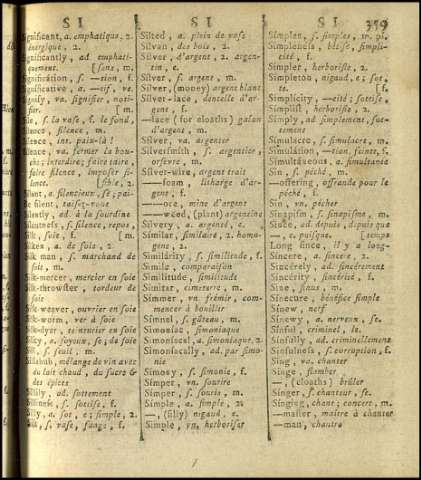 SI
SI
SI
359
Significant, a. emphatique, 2.
énergique, 2.
Significantly, ad. emphati-
quement. [sens, m.
Signification, s. —tion, f.
Significative, a. —if, ve.
Signify, va. signifier, noti-
fier. [m.
Sile, s. la vase, f. le fond,
Silence, silence, m.
Silence, int. paix-là!
Silence, va. fermer la bou-
che; interdire; faire taire,
faire silence, imposer si-
lence. [sible, 2.
Silent, a. silencieux, se; pai-
Be silent, taisez-vous
Silently, ad. à la sourdine
Silentness, s. silence, repos,
Silk, soie, f. [m.
Silken, a. de soie, 2.
Silk man, s. marchand de
soie, m.
Silk-mercer, mercier en soie
Silk-throwster, tordeur de
soie
Silk-weaver, ouvrier en soie
Silk-worm, ver à soie
Silk-dyer, teinturier en soie
Silky, a. soyoux, se; de soie
Sill, s. seuil, m.
Sillabub, mélange de vin avec
du lait chaud, du sucre &
des épices
Sillily, ad. sottement
Silliness, s. sottise, f.
Silly, a. sot, e; simple, 2.
Silt, s. vase, fange, f.
Silted, a. plein de vase
Silvan, des bois, 2.
Silver, d'argent, 2. argen-
tin, e.
Silver, s. argent, m.
Silver, (money) argent blanc
Silver-lace, dentelle d'ar-
gent, f.
—lace (for cloaths) galon
d'argent, m.
Silver, va. argenter
Silversmith, s. argentier,
orfevre, m.
Silver-wire, argent trait
——foam, litharge d'ar-
gent, f.
——ore, mine d'argent
——weed, (plant) argentine
Silvery, a. argenté, e.
Similar, similaire, 2. homo-
gene, 2.
Similarity, s. similitude, f.
Simile, comparaison
Similitude, similitude
Simitar, cimeterre, m.
Simmer, vn. frémir, com-
mencer à bouillir
Simnel, s. gâteau, m.
Simoniac, simoniaque
Simoniacal, a. simoniaque, 2.
Simoniacally, ad. par simo-
nie
Simony, s. simonie, f.
Simper, vn. sourire
Simper, s. souris, m.
Simple, a. simple, 2.
—, (silly) nigaud, e.
Simple, vn. herboriser
Simples, s. simples, m. pl.
Simpleness, bêtise, simpli-
cité, f.
Simpler, herboriste, 2.
Simpleton, nigaud, e; sot,
te. [f.
Simplicity, —cité; sottise,
Simplist, herboriste, 2.
Simply, ad. simplement, sot-
tement
Simulacre, s. simulacre, m.
Simulation, —tion, feinte, f.
Simultaneous, a. simultanée
Sin, s. péché, m.
—offering, offrande pour le
péché, f.
Sin, vn. pécher
Sinapism, s. sinapisme, m.
Since, ad. depuis, depuis que
—, c. puisque [temps
Long since, il y a long-
Sincere, a. sincere, 2.
Sincerely, ad. sincérement
Sincerity, sincérité, f.
Sine, sinus, m.
Sinecure, bénéfice simple
Sinew, nerf
Sinewy, a. nerveux, se.
Sinful, criminel, le.
Sinfully, ad. criminellement
Sinfulness, s. corruption, f.
Sing, va. chanter
Singe, flamber
—, (cloaths) brûler
Singer, s. chanteur, se.
Singing, chant; concert, m.
—master, maître à chanter
—man, chantre